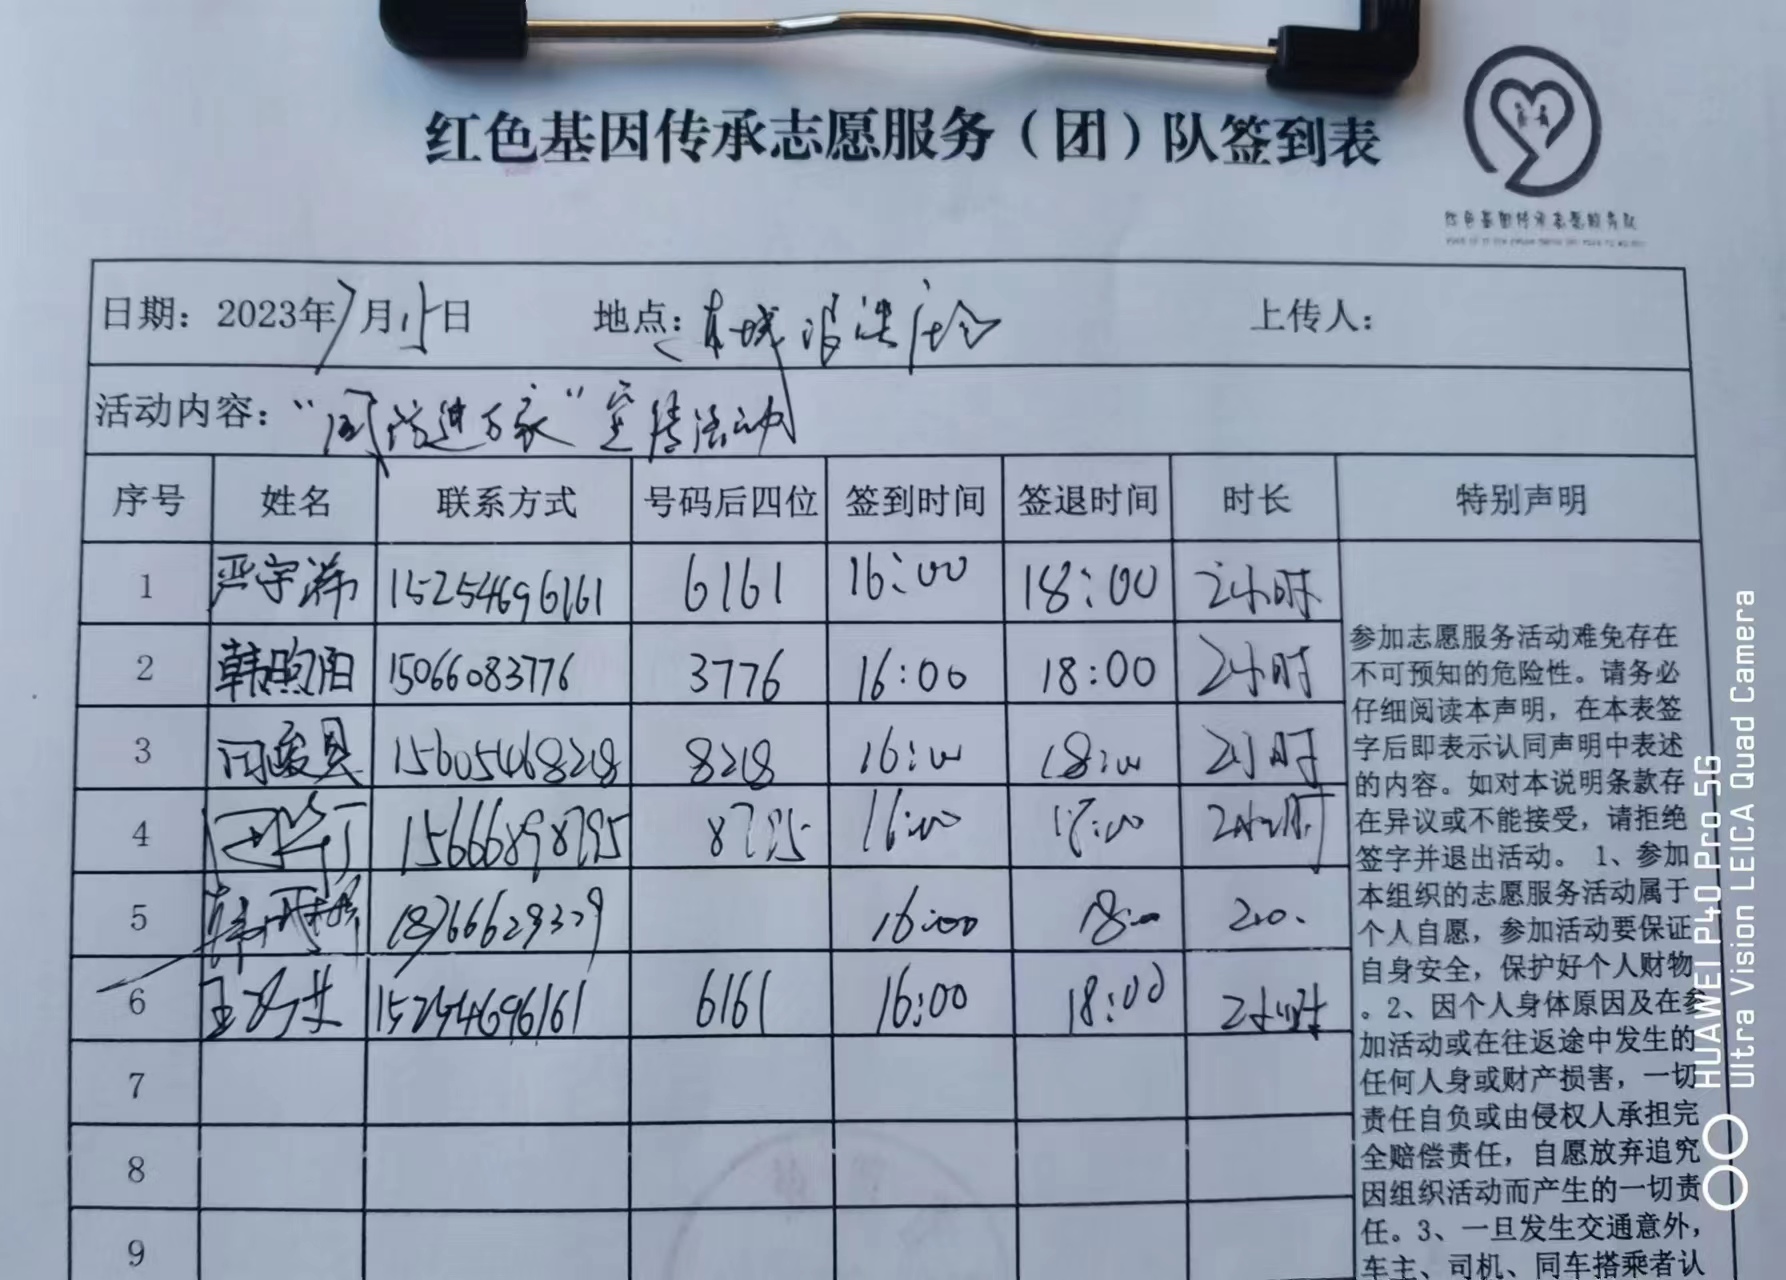 红色基因传承志愿服务（团）队签到表
红色基因传承志愿服务队
日期：2023年7月15日 地点： 上传人：
活动内容：“国防进万家”宣传活动
序号 姓名 联系方式 号码后四位 签到时间 签退时间 时长 特别声明
1 严宇 15254696161 6161 16:00 18:00 2小时
2 韩煦阳 15066083776 3776 16:00 18:00 2小时
3 15605468218 8218 16:00 18:00 2小时
4 15666898795 8795 16:00 18:00 2小时
5 18766629329 16:00 18:00
6 王 15254696161 6161 16:00 18:00 2小时
7
8
9
参加志愿服务活动难免存在
不可预知的危险性。请务必
仔细阅读本声明，在本表签
字后即表示认同声明中表述
的内容。如对本说明条款存
在异议或不能接受，请拒绝
签字并退出活动。 1、参加
本组织的志愿服务活动属于
个人自愿，参加活动要保证
自身安全，保护好个人财物
。2、因个人身体原因及在参
加活动或在往返途中发生的
任何人身或财产损害，一切
责任自负或由侵权人承担完
全赔偿责任，自愿放弃追究
因组织活动而产生的一切责
任。3、一旦发生交通意外，
车主、司机、同车搭乘者认
HUAWEI P40 Pro 5G
Ultra Vision LEICA Quad Camera